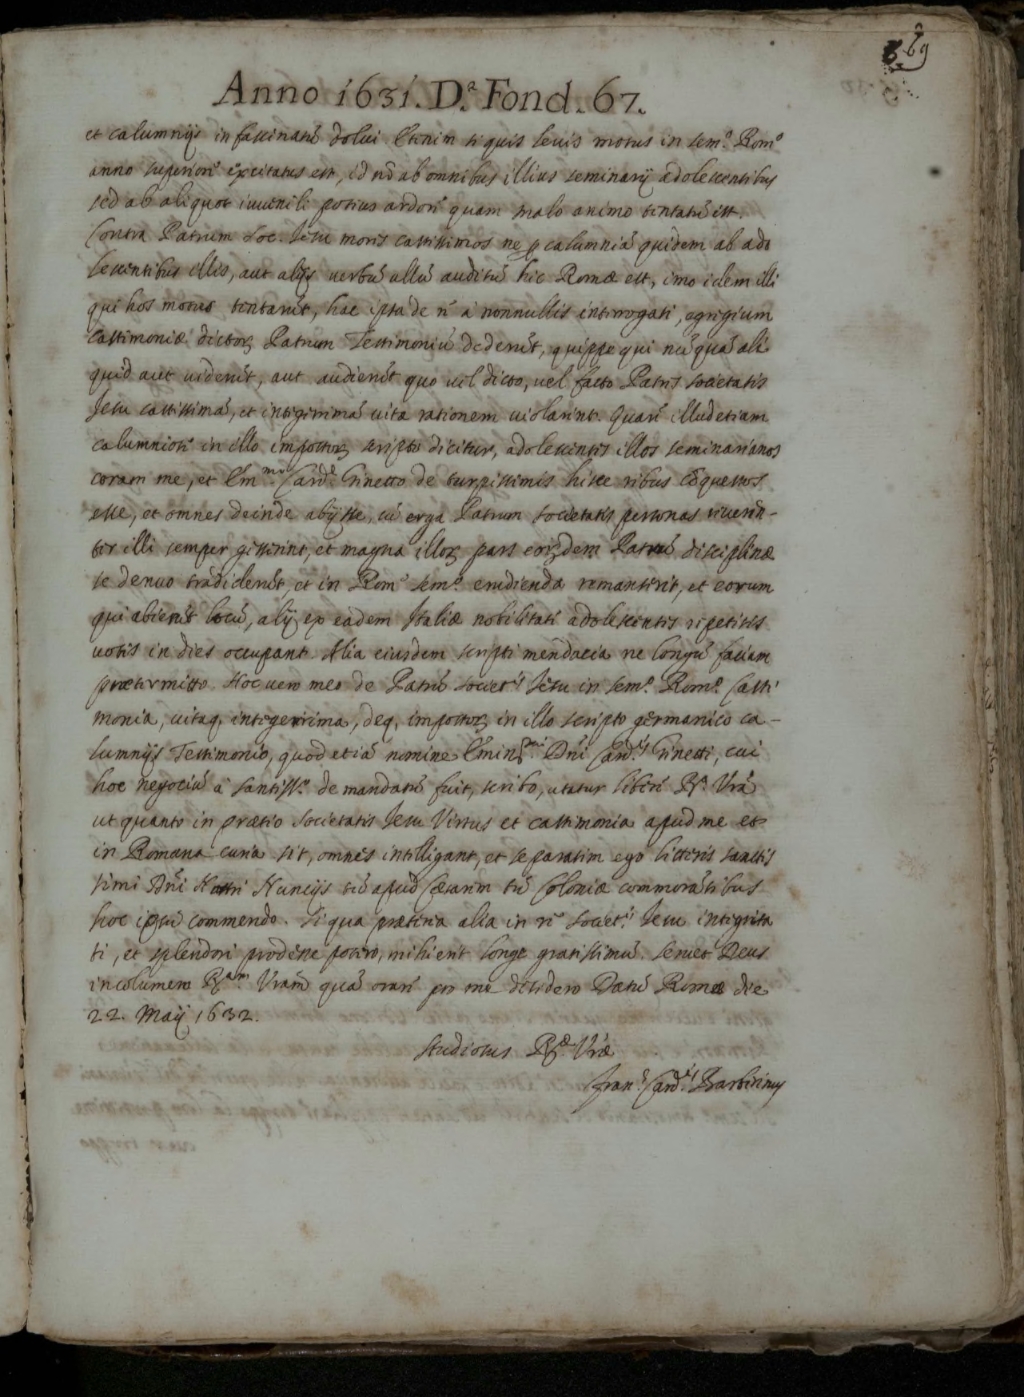 69
Anno 1631. D.ª Fond. 67.
et calumnijs infascinatũ dolui Etenim si quis levis motus in sem.º Rom.º
anno superiori excitatus est, id nõ ab omnibus illius seminarij adolescentibus
sed ab aliquot iuvenili potius ardori quam malo animo tentatũ est.
Contra Patrum Soc. Iesu moris castissimos ne p calumniã quidem ab ado
lescentibus illis, aut alijs verbũ ullũ auditũ hic Romæ est, imo idem illi
qui hos motus tentarũt, hac ipsa de rẽ a nonnullis interrogati, egregium
castimoniæ dictoꝝ Patrum Testimoniũ dederũt, quippe qui nũquã ali
quid aut viderũt, aut audierũt quo vel dicto, vel facto Patris societatis
Iesu castissimã, et integerrimã vitæ rationem violarint. Quarẽ illud etiam
calumniosẽ in illo impostoꝝ scripto dicitur, adolescentis illos seminarianos
coram me, et Em.mo Card.e Ginetto de turpissimis hisce ribus cõquestos
esse, et omnes deinde abijsse, cũ erga Patrum societatis personas riverin-
ter illi semper gesserint, et magna illoꝝ pars eiusdem Patrũ disciplinæ
se denuo tradiderũt, et in Rom.º sem.º erudienda remanserit, et eorum
qui abierũt locũ, alij ex eadem Italiæ nobilitati adolescentis ripetitis
votis in dies occupant. Alia eiusdem scripti mendacia ne longũ faciam
prætermitto. Hoc vero meo de Patrũ societ.s Iesu in sem.º Rom.º Casti
monia, vitaq, integerrima, deq, impostoꝝ in illo scripto germanico ca-
lumnijs Testimonio, quod etiã nomine Eminmi Dñi Card.is Ginetti, cui
hoc negociũ a Santiss.º demandatũ fuit, scribo, utatur liberẽ R.ª Vrã
ut quanto in prætio societatis Iesu Virtus et castimonia apud me et
in Romana curia sit, omnes intilligant, et separatim ego litteris sanctis
simi Dñi Nostri Nuncijs tũ apud Cæsarem tũ Coloniæ commorãtibus
hoc ipsũ commendo. Si qua præterea alia in rẽ societ.s Iesu integrita
ti, et splendori prodesse potero, mihi erit longe gratissimũ. Servet Deus
incolumem R.am Vram quã orari pro me desidero Datũ Romæ die
22. Maij 1632.
Studiosus R.æ Vræ
Fran.s Card.lis Barberinus